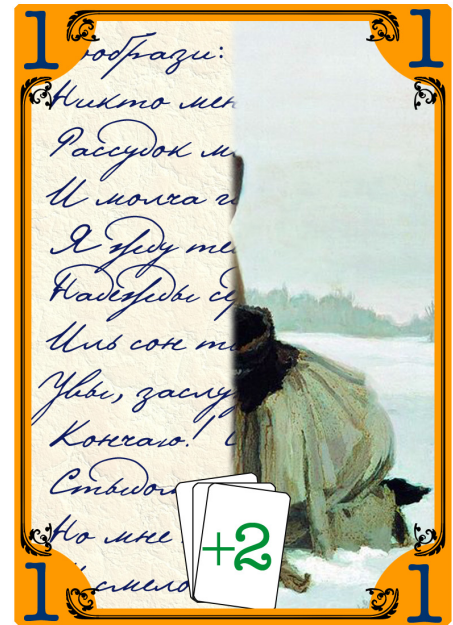 1 1
ообрази:
Никто мен
Рассудок м
И молча г
Я жду те
Надежды се
Иль сон т
Увы, заслу
Кончаю!
Стыдом
Но мне
И смело
+2
1 1